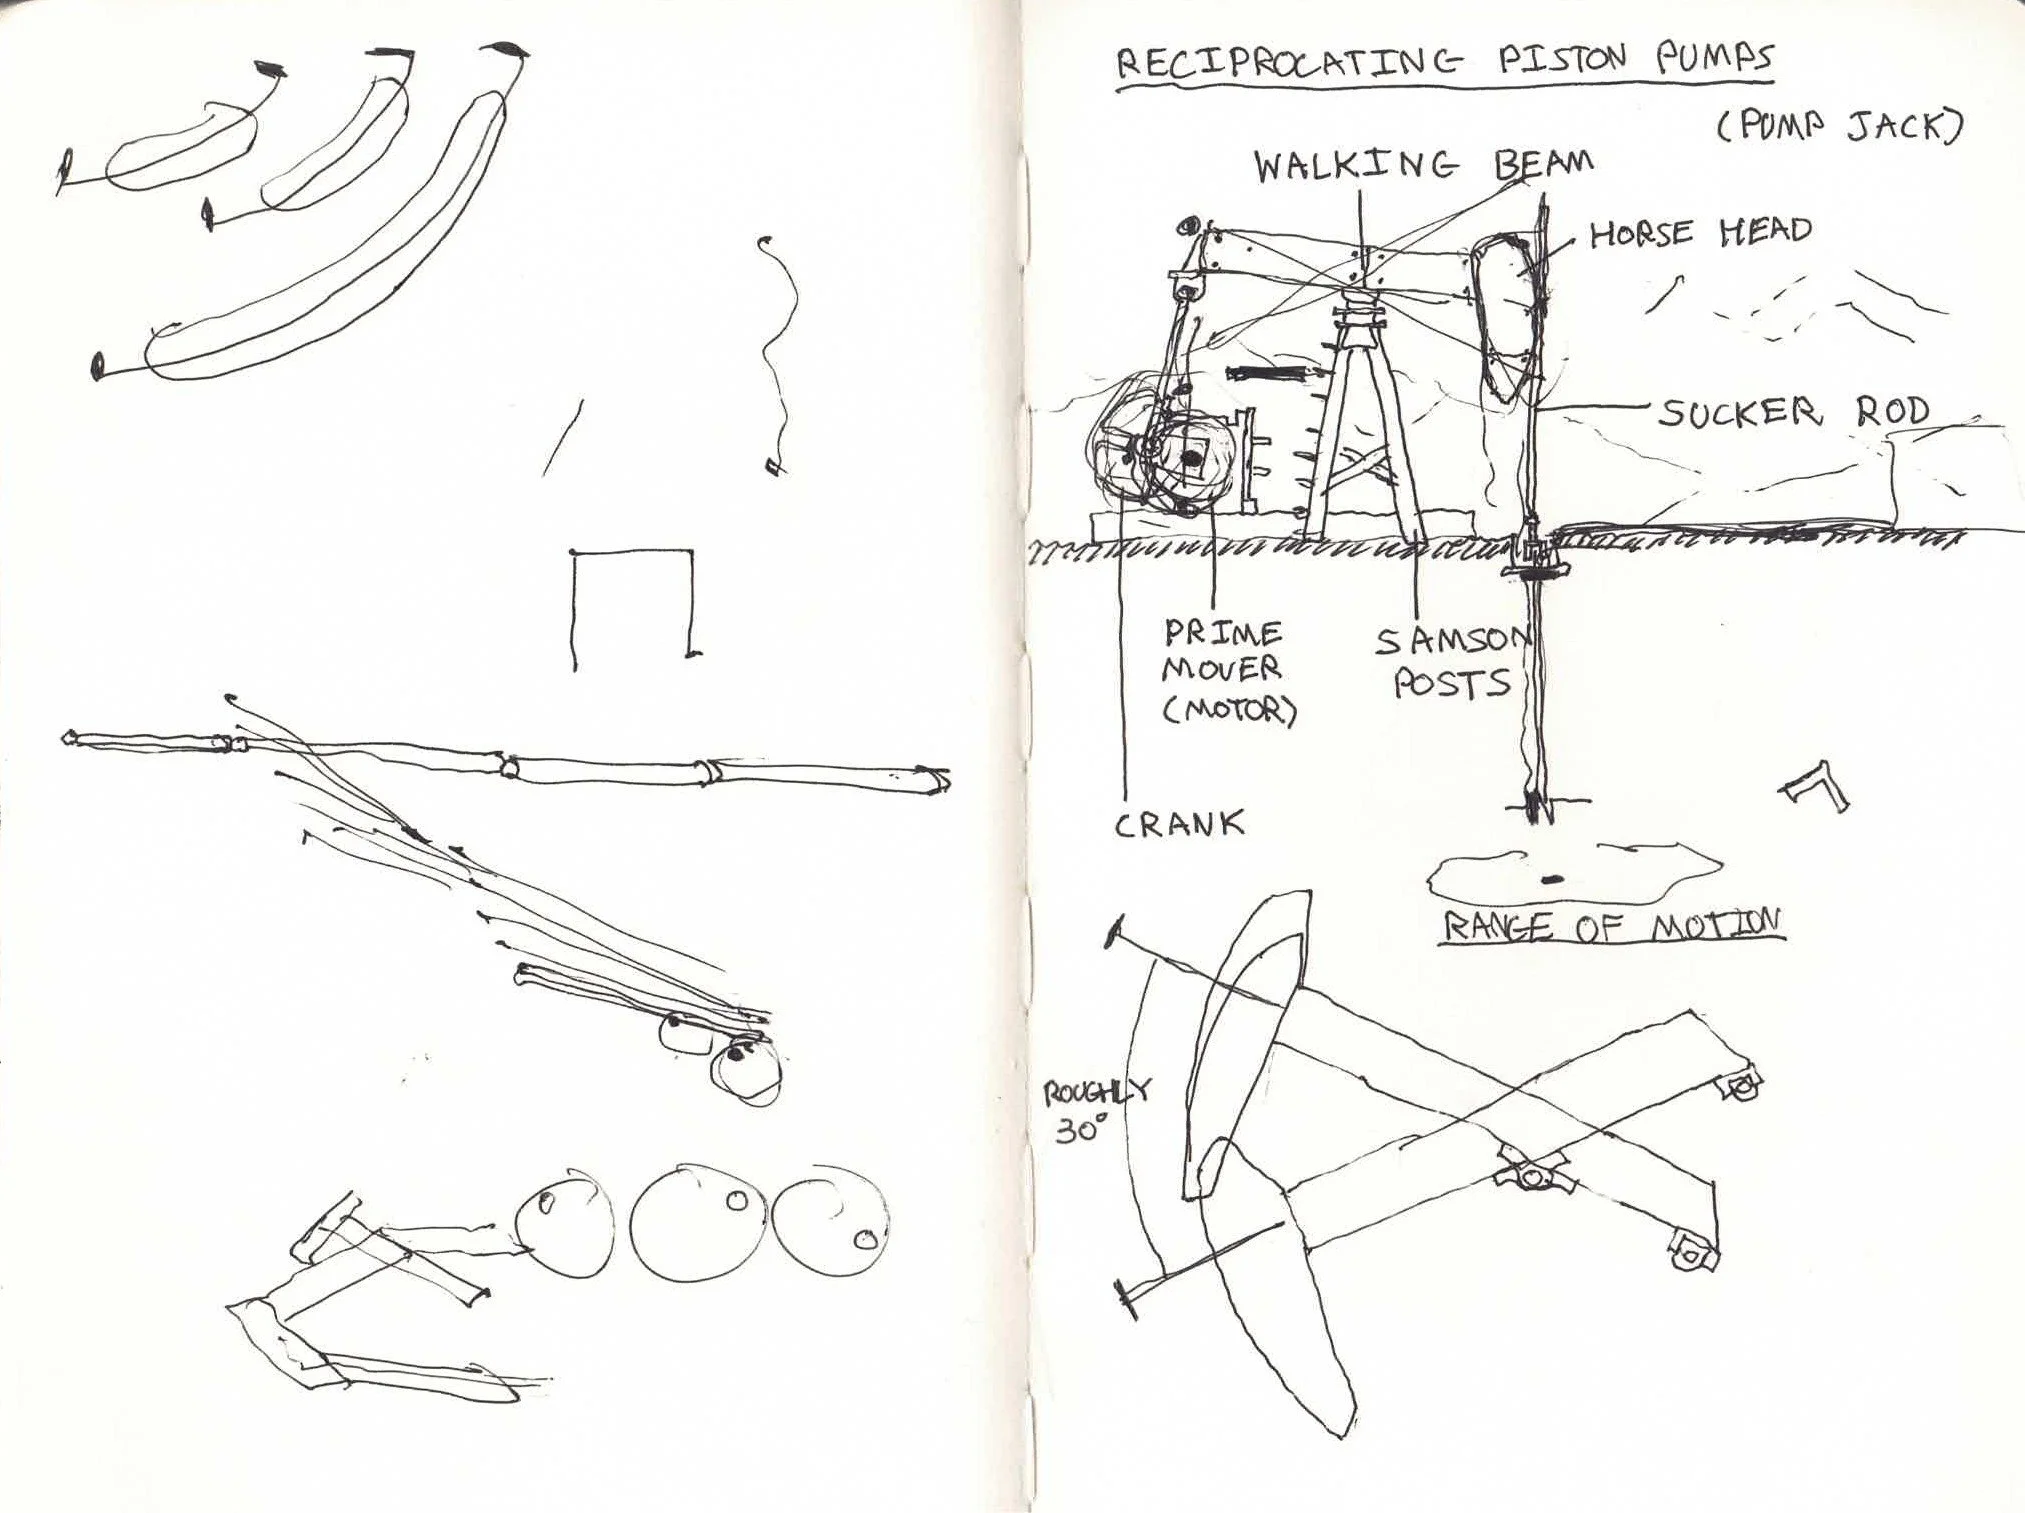 RECIPROCATING PISTON PUMPS
(PUMP JACK)
WALKING BEAM
HORSE HEAD
SUCKER ROD
PRIME
MOVER
(MOTOR)
SAMSON
POSTS
CRANK
RANGE OF MOTION
ROUGHLY
30°